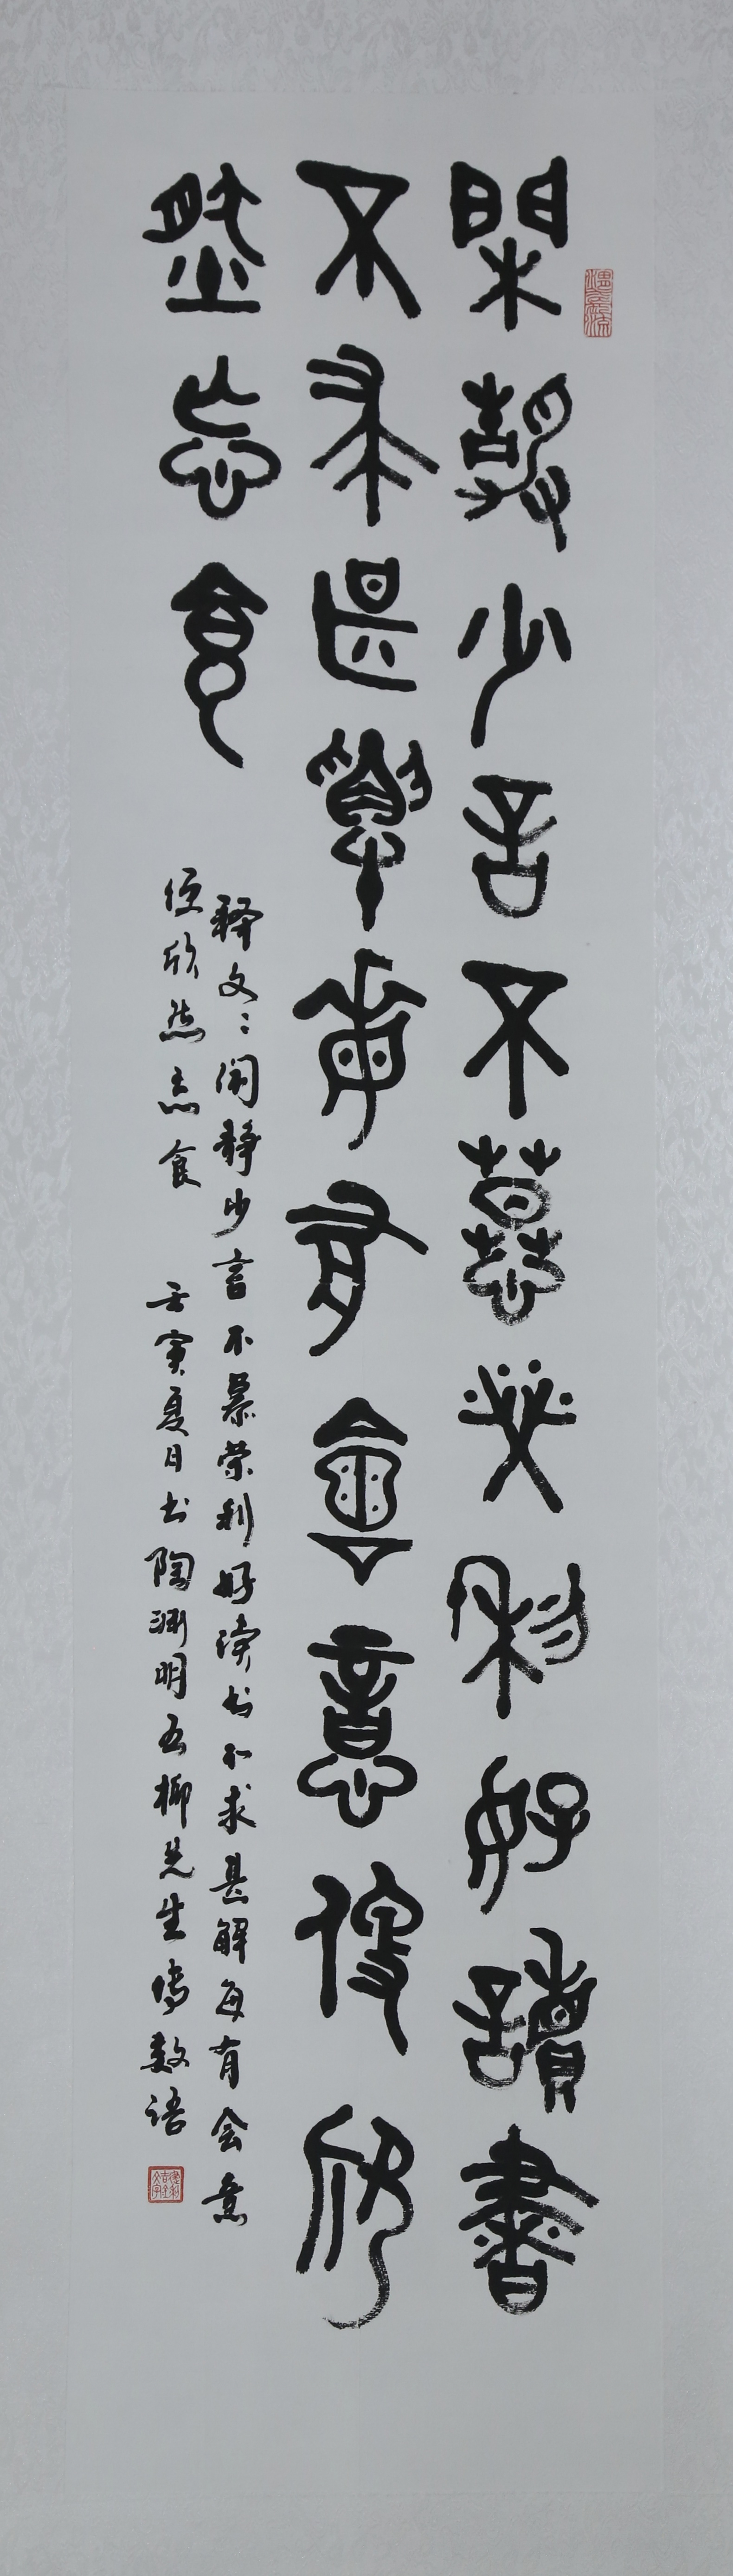 閑静少言不慕荣利好讀書
不求甚解每有會意便欣
然忘食
释文：闲静少言不慕荣利好读书不求甚解每有会意
便欣然忘食 壬寅夏日书陶渊明五柳先生传数语